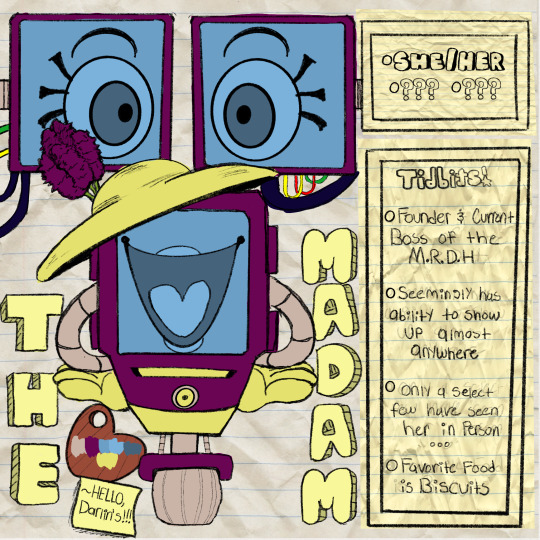 SHE/HER
??? ???
Tidbits!
Founder & Current
Boss of the
M.R.D.H
Seemingly has
ability to show
UP almost
anywhere
Only a select
few have seen
her in Person
...
Favorite Food
is Biscuits
THE
MADAM
~HELLO,
Darlin's!!!